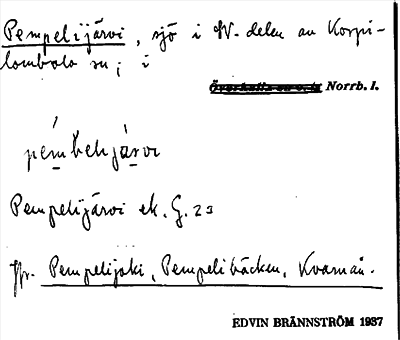 Pempelijärvi, sjö i N.V. delen av Korpi-
lombolo sn; i
Norrb. l.
pém̱beḻijá̱rvi
Pempelijärvi ek. G. 23
Jfr. Pempelijoki, Pempelibäcken, Kvarnån.
EDVIN BRÄNNSTRÖM 1937